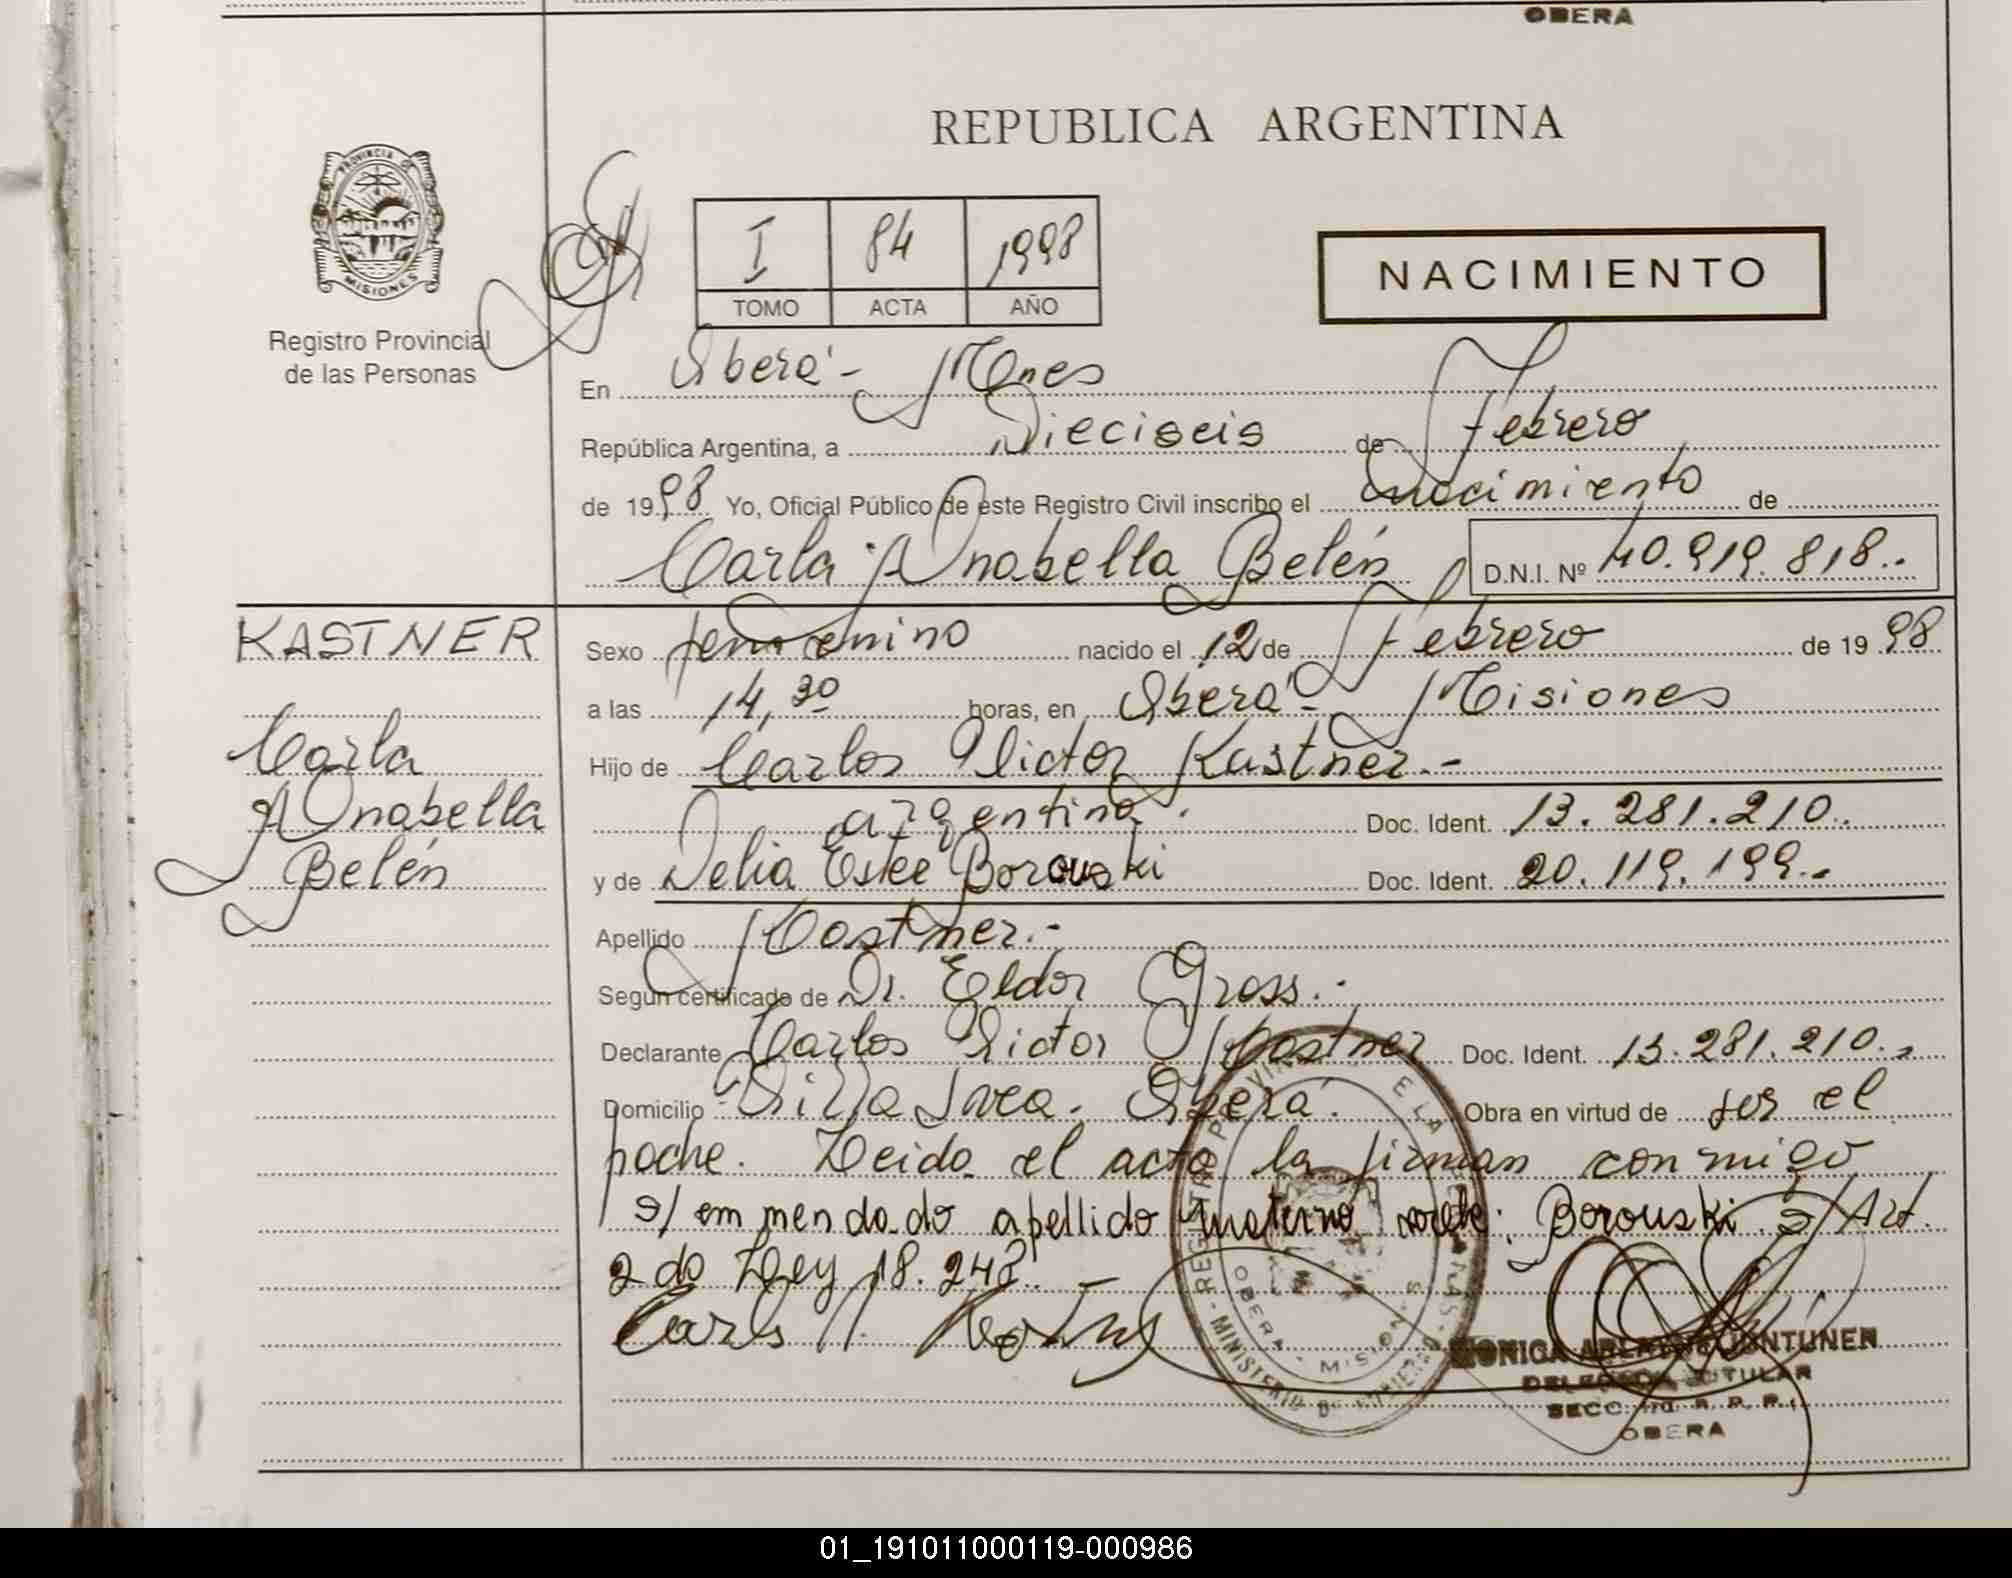 OBERA
REPUBLICA ARGENTINA
PROVINCIA DE
MISIONES
Registro Provincial
de las Personas
I 84 1998
TOMO ACTA AÑO
NACIMIENTO
En Oberá - Mnes
República Argentina, a Dieciseis de Febrero
de 1998 Yo, Oficial Público de este Registro Civil inscribo el nacimiento de
Carla Anabella Belén D.N.I. Nº 40.919.818..
KASTNER
Carla
Anabella
Belén
Sexo femenino nacido el 12 de Febrero de 1998
a las 14,30 horas, en Oberá - Misiones
Hijo de Carlos Victor Kastner.-
argentino. Doc. Ident. 13.281.210.
y de Delia Ester Borouski Doc. Ident. 20.119.199.-
Apellido Kastner.-
Según certificado de Dr. Eldor Gross.-
Declarante Carlos Victor Kastner Doc. Ident. 13.281.210.-
Domicilio Villa Svea. Oberá. Obra en virtud de ser el
padre. Leida el acta la firman conmigo
s/ emmendado apellido materno vale: Borouski s/Art.
2do Ley 18.248. -
Carlos V. Kastner
OBERA - MISIONES
MONICA JONTUNEN
DELEGADA TITULAR
SECC. 1ra. R. P. P.
OBERA
01_191011000119-000986